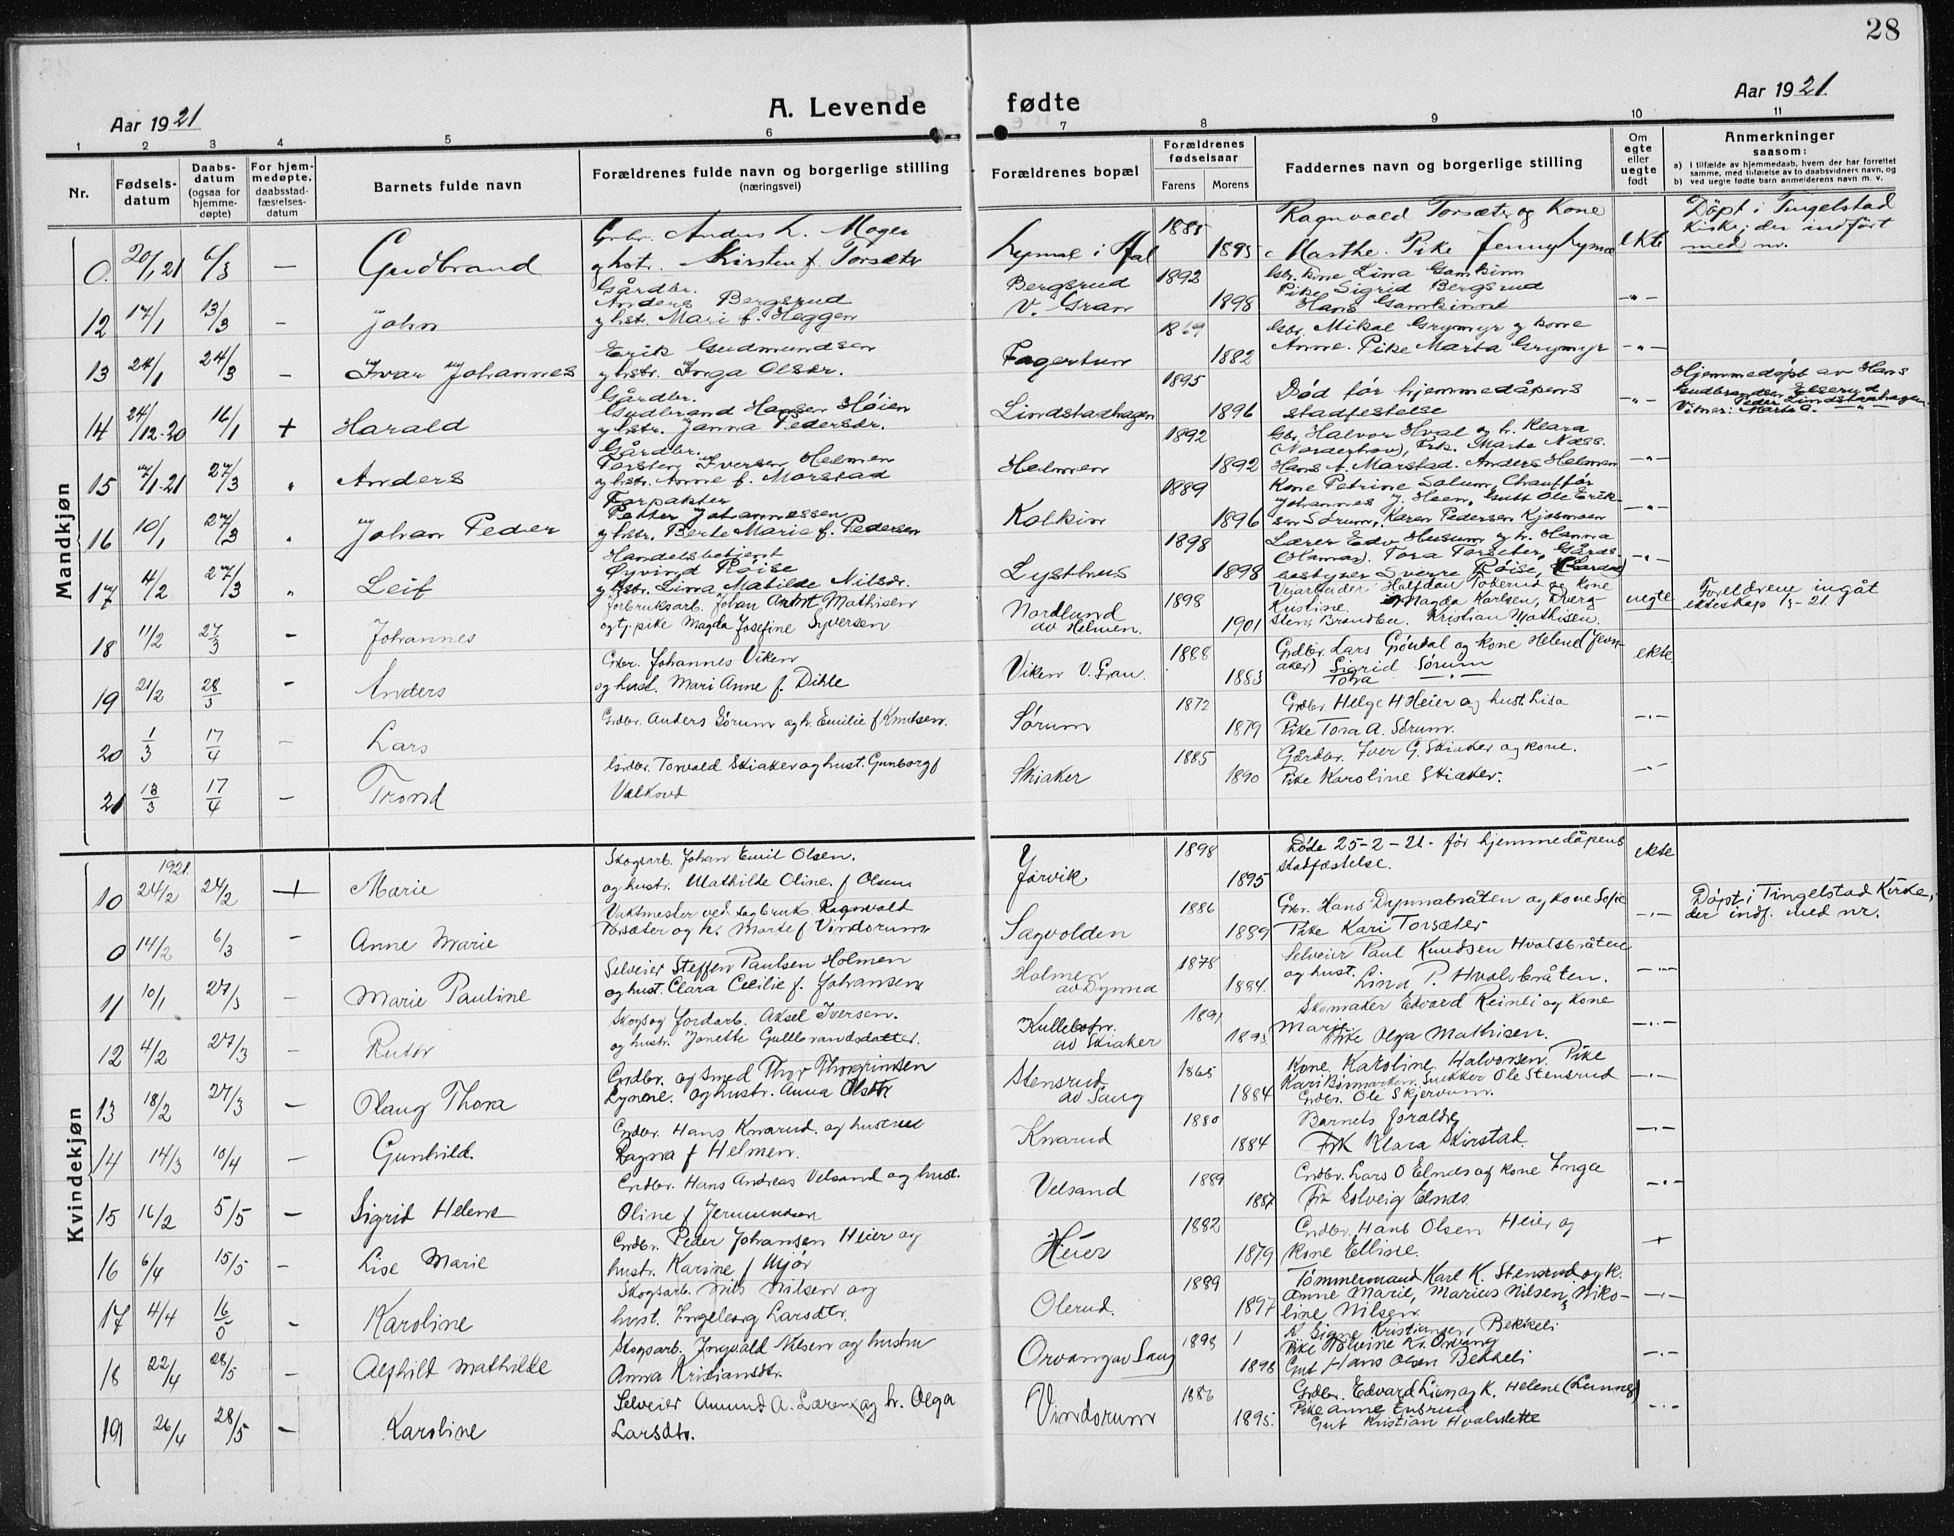 28
Aar 1921
A. Levende fødte
Aar 1921
1 2 3 4 5 6 7 8 9 10 11
Nr.
Fødsels-
datum
Daabs-
datum
(ogsaa for
hjemme-
døpte)
For hjem-
medøpte,
daabsstad-
fæstelses-
datum
Barnets fulde navn
Forældrenes fulde navn og borgerlige stilling
(næringsvei)
Forældrenes bopæl
Forældrenes
fødselsaar
Farens Morens
Faddernes navn og borgerlige stilling
Om
egte
eller
uegte
født
Anmerkninger
saasom:
a) I tilfælde av hjemmedaab, hvem der har forrettet
samme, med tilføielse av to daabsvidners navn, og
b) ved uegte fødte barn anmelderens navn m. v.
Mandkjøn
0. 20/1 21 6/3 — Gudbrand
Anders L. Moger
og hstr. Kirsten f. Torsæter
1885 1893
Ragnvald Torsæter og Kone
Marthe. Pike Jenny Lynne
ekte
Döpt i Tingelstad
Kirke, der indført
med nr.
12 17/1 13/3 — John
Gårdbr.
Anders Bergsrud
og hst. Mari f. Heggen
Bergsrud
V. Gran
1892 1898
Gbr. kone Lina Gamkinn
Pike Sigrid Bergsrud
Hans Gamkinne
-"-
13 24/1 24/3 — Ivar Johannes
Erik Gudmundsen
og hstr. Inga Olsdr.
Fagertun
1869 1882
Gbr. Mikal Grymyr og kone
Anne. Pike Marta Grymyr
-"-
14 24/12-20 16/1 + Harald
Gårdbr.
Gudbrand Hansen Høien
og hstr. Janna Pedersdr.
Lindstadhagen
1895 1896
Død før hjemmedåpens
stadfestelse
-"-
Hjemmedöpt av Hans
Gudbrandsen Elserud
Vitner: Peder Lindstadhagen
Marte G. —"—
15 7/1-21 27/3 " Anders
Gårdbr.
Torsten Iversen Helmen
og hstr. Anne f. Morstad
Helmen
1892 1892
Gbr. Halvor Hval og h. Klara
(Norderhov), Frk. Marta Næss.
Hans A. Marstad. Anders Helmen
-"-
16 10/1 27/3 " Johan Peder
Forpakter
Petter Johannessen
og hstr. Berte Marie f. Pedersen
Kolkin
1889 1896
Kone Petrine Solum, Chauffør
Johannes J. Heen, Gutt Ole Erik-
sen Sørum, Karen Pedersen Kjosmoen
-"-
17 4/2 27/3 " Leif
Handelsbetjent
Øyvind Røise
og hstr. Lina Matilde Nilsdr.
Lysthus
1898 1898
Lærer Edv Husum og h. Hanna
(Hamar). Tora Torseter, Gårds-
bestyrer Sverre Røise,
-"-
18 11/2 27/3 — Johannes
Jorbruksarb. Johan Anton Mathisen
og tj.pike Magda Josefine Syversen
Nordlund
av Helmen.
1898 1901
Veiarbeider Halfdan Tokerud og kone
Kristine. Magda Karlsen, Dverg-
sten, Branbu. Kristian Mathisen.
uegte
Foreldrene ingåt
ekteskap 1/5-21
19 21/2 28/3 — Anders
Grdbr. Johannes Viken
og hust. Mari Anne f. Dihle
Viken V. Gran.
1888 1883
Grdbr. Lars Grøndal og kone Helene (Jevn-
aker) Sigrid Sørum
Tora —"—
ekte
20 1/3 17/4 — Lars
Grdbr. Anders Sørum og h. Emilie f Knutsen.
Sørum
1872 1879
Grdbr. Helge H Heier og hust Lisa
Pike Tora A. Sørum.
-"-
21 13/3 17/4 — Trond
Grdbr. Torvald Skiaker og hust. Gunborg f
Velkovd
Skiaker
1885 1890
Gårdbr. Iver G. Skiaker og kone.
Pike Karoline Skiaker.
-"-
Kvindekjøn
1921.
10 24/2 24/2 + Marie
Skogsarb. Johan Emil Olsen.
og hustr. Mathilde Oline f Olsen
Jarvik
1898 1895
Døde 25-2-21. før hjemmedåpens
stadfæstelse.
ekte
0 14/2 6/3 — Anne Marie
Vaktmester ved sagbruk. Ragnvald
Torsæter og h. Marte f Vindorum
Sagvolden
1886 1889
Grbr. Hans Dynnabråten og kone Sofie
Pike Kari Torsæter
-"-
Döpt i Tingelstad Kirke,
der indf. med nr.
11 10/1 27/3 — Marie Pauline
Selveier Steffen Paulsen Holmen
og hust. Clara Cecilie f. Johansen
Holmen
av Dynna
1878 1884
Selveier Paul Knudsen Hvalsbråten
og hust. Lina P. Hvalsbråten.
-"-
12 4/2 27/3 — Ruth
Skogs og Jordarb. Aksel Iversen.
og hustr. Jonette Gulbrandsdatter.
av Skiaker
1891 1893
Skomaker Edvard Reinli og kone
Marie. Pike Olga Mathisen.
-"-
13 18/2 27/3 — Olaug Thora
Grdbr. og smed Thor Thorprinsen
Lynne. og hustr. Anna Olsdtr
Stensrud
av Saug
1865 1884
Kone Karoline Halvorsen. Pike
Kari Bismarken. Snekker Ole Stensrud
Grdbr. Ole Skjervum.
-"-
14 14/3 10/4 — Gunhild.
Grdbr. Hans Knarud. og hustru
Ragna f Helmen.
Knarud
1880 1884
Barnets foraldre
Frk Klara Skirstad
-"-
15 16/2 5/5 — Sigrid Helene
Grdbr. Hans Andreas Velsand og hust.
Oline f Jermundsen
Velsand
1889 1887
Grdbr. Lars O Elnes og kone Inga
Frk Solveig Elnes.
-"-
16 6/4 15/5 — Lise Marie
Grdbr. Peder Johansen Heier og
hustr. Karine f Mjør
Heier
1882 1879
Grdbr. Hans Olsen Heier og
kone Elline.
17 4/4 16/5 — Karoline
Skogsarb. Nils Nilsen og
hust. Ingeborg Larsdtr.
Olerud.
1889 1897
Tømmermand Karl K. Stensrud og k.
Anne Marie, Marius Nilsen, Niko-
line Nilsen.
-"-
18 22/4 28/5 — Alfhild Mathilde
Skogsarb. Ingvald Nilsen og hustru
Anna Kristiansdtr.
Orvang av Saug
1898 1898
K Signe Kristiansen, Bekkeli
Pike Tolvine Kr. Orvang
Gut Hans Olsen Bekkeli
-"-
19 26/4 28/5 — Karoline
Selveier Amund A. Læren og h. Olga
Larsdtr.
Vindorum
1886 1895
Grdbr. Edvard Lien og k. Helene (Lunner)
Pike Anne Ensrud
Gut Kristian Hvalslette
-"-